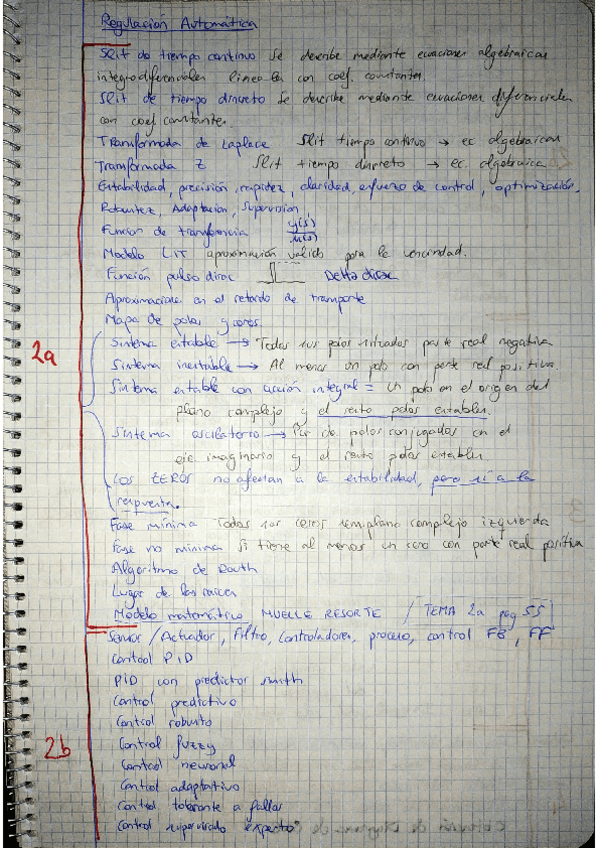 Regulación Automática
Slit de tiempo continuo se describe mediante ecuaciones algebraicas
integrodiferenciales lineales con coef. constantes.
Slit de tiempo discreto se describe mediante ecuaciones diferenciales
con coef constantes.
Transformada de Laplace Slit tiempo continuo → ec algebraicas
Transformada z Slit tiempo discreto → ec. algebraica
Estabilidad, precisión, rapidez, claridad, esfuerzo de control, optimización,
Robustez, Adaptación, Supervisión
Función de transferencia y(s)/u(s)
Modelo LIT aproximación valida para la vencindad.
Función pulso dirac Delta dirac
Aproximaciones en el retardo de transporte
Mapa de polos y ceros.
2a
Sistema estable → Todos sus polos situados parte real negativa
Sistema inestable → Al menos un polo con parte real positiva.
Sistema estable con acción integral = un polo en el origen del
plano complejo y el resto polos estables.
Sistema oscilatorio → Par de polos conjugados en el
eje imaginario y el resto polos estables
Los ZEROS no afectan a la estabilidad, pero sí a la
respuesta.
Fase mínima Todos los ceros semiplano complejo izquierda
Fase no minima Si tiene al menos un cero con parte real positiva
Algoritmo de Routh
Lugar de las raíces
Modelo matemático MUELLE RESORTE / TEMA 2a pag 55
Sensor / Actuador, Filtro, Controladores, proceso, control FB, FF
Control PID
PID con predictor smith
Control predictivo
Control robusto
2b
Control fuzzy
Control neuronal
Control adaptativo
Control tolerante a fallos
Control supervisado experto